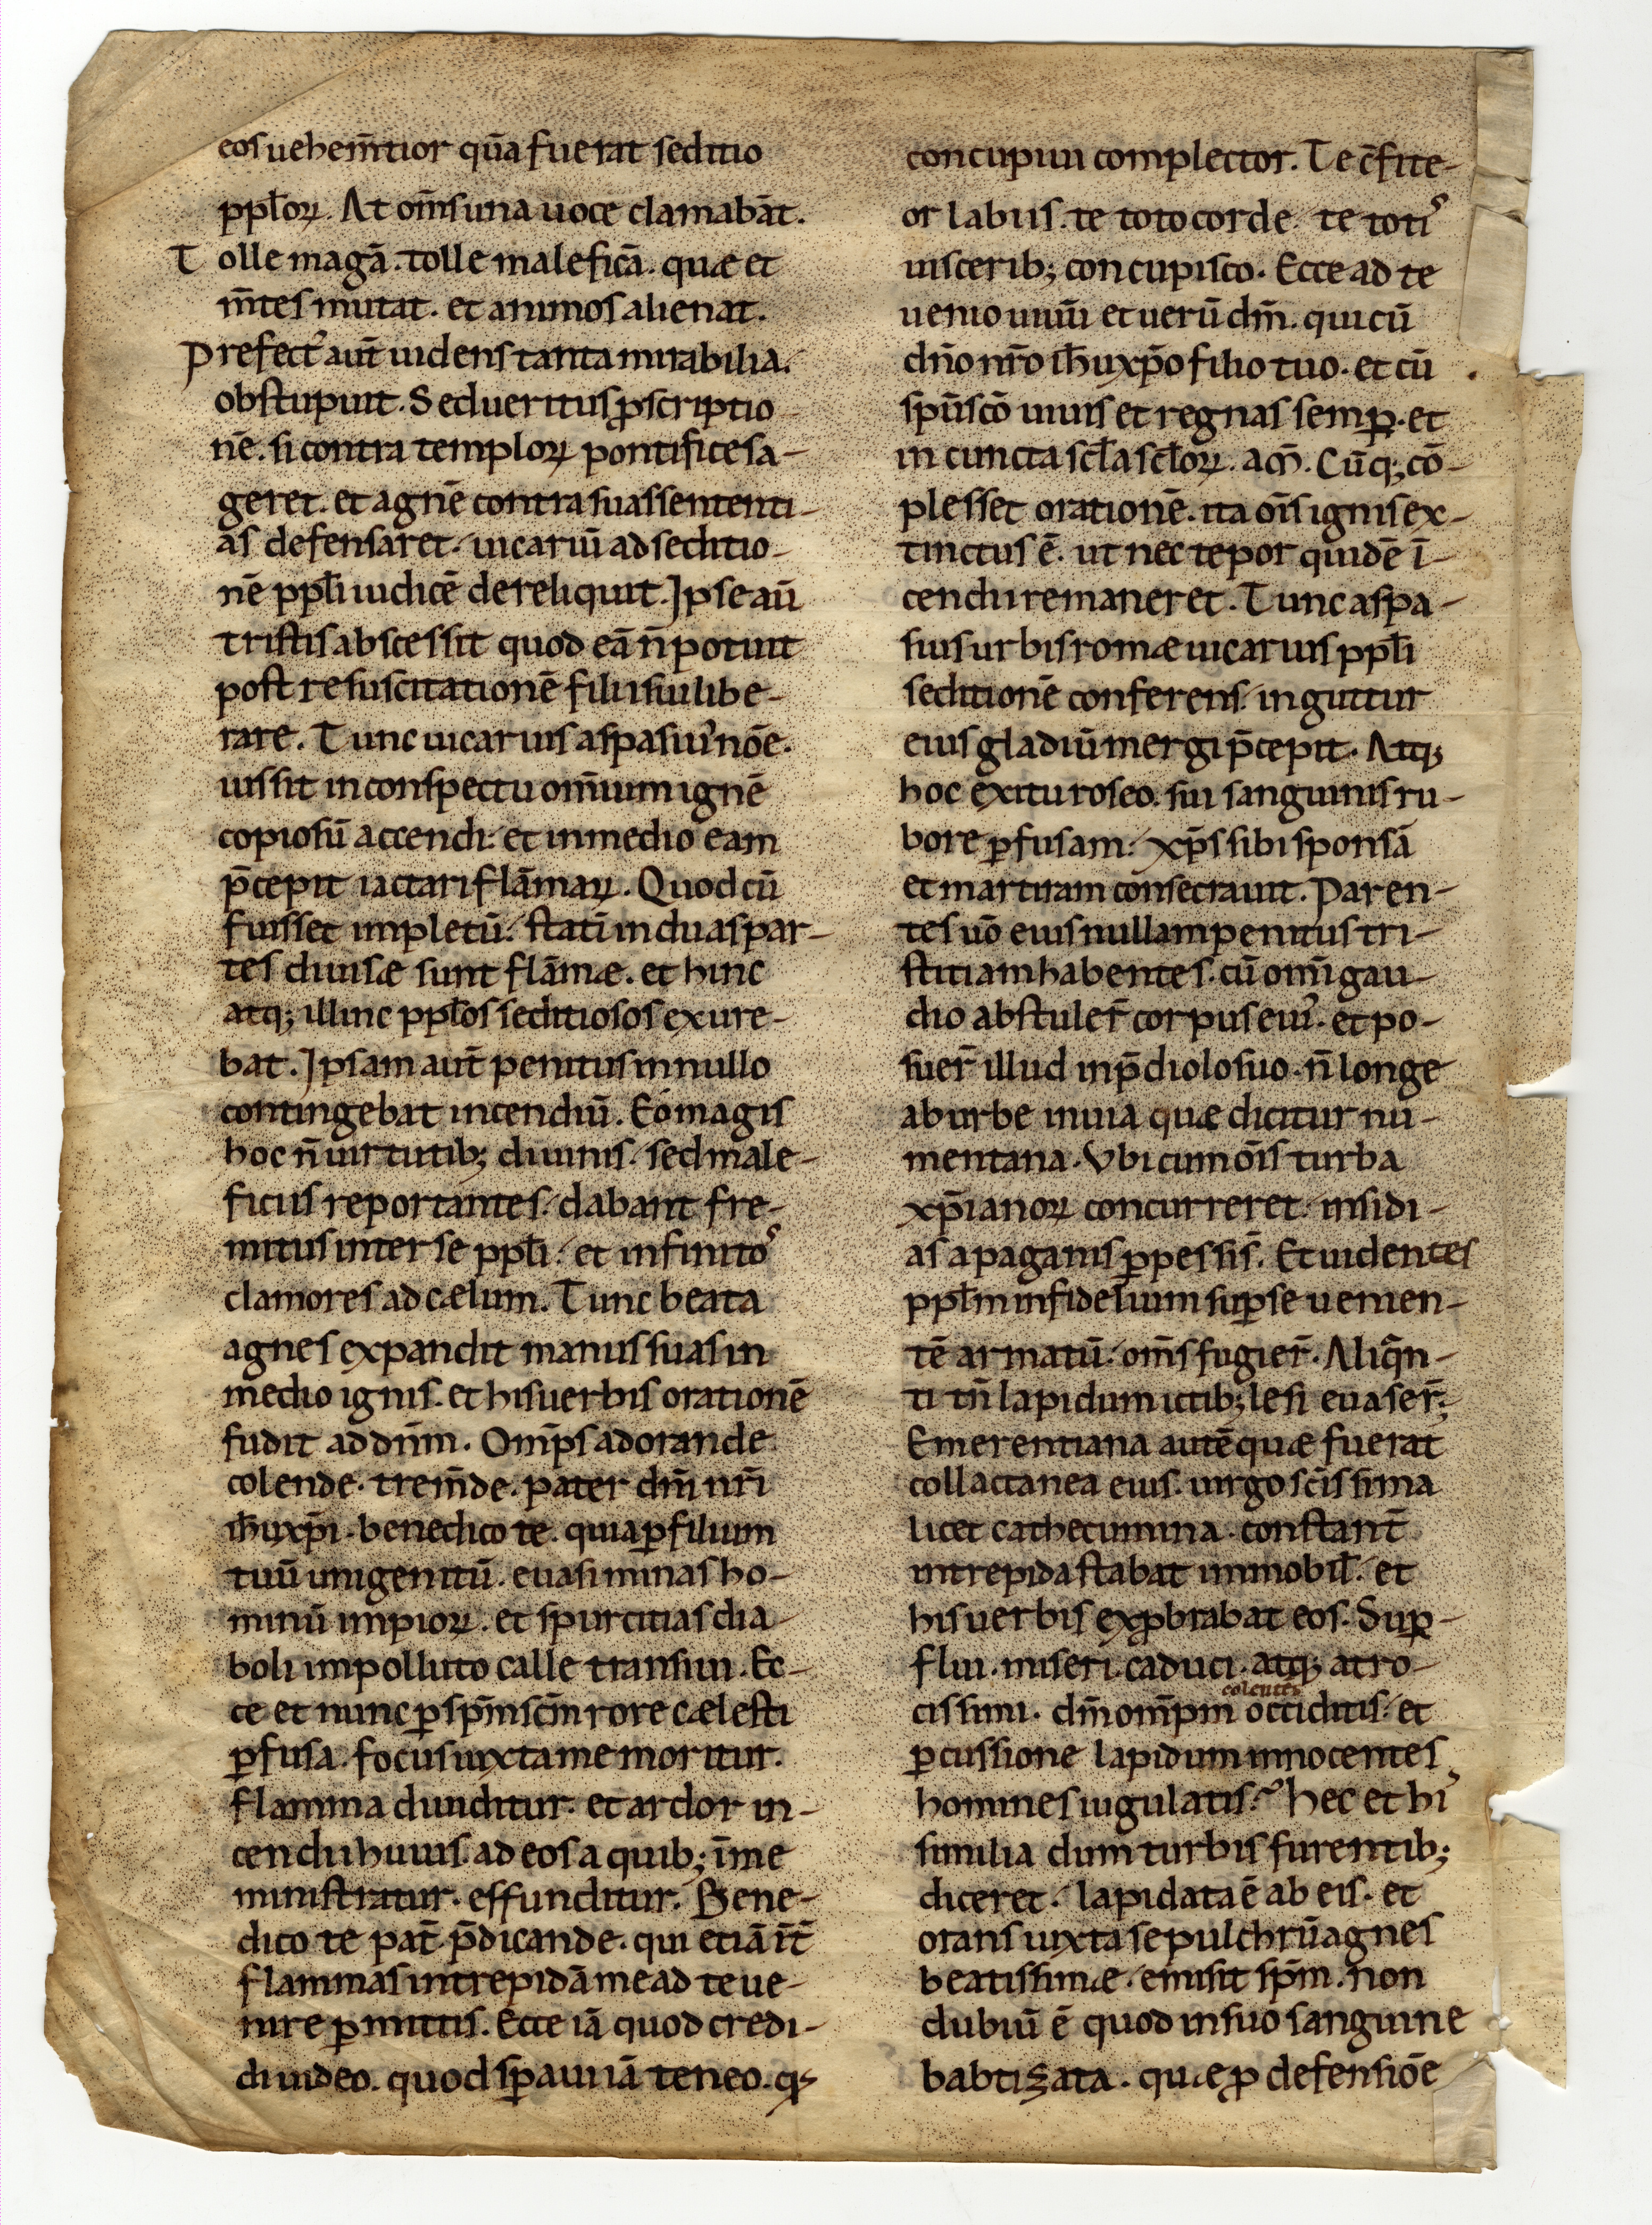 eos uehem̄tior quā fuerat seditio
pp̄loꝝ. At om̄s una uoce clamabāt.
Tolle magā. tolle maleficā. quæ et
m̄tes mutat. et animos alienat.
Prefect᾽ aut̄ uidens tanta mirabilia.
obstupuit. Sed ueritus ꝓscriptio
nē. si contra temploꝝ pontifices a-
geret. et agnē contra suas sententi-
as defensaret. uicariū ad seditio-
nē pp̄li iudicē dereliquit. Ipse aū
tristis abscessit quod eā n̄ potuit
post resuscitationē filii sui libe-
rare. Tunc uicarius aspasiu᾽ nōe.
iussit in conspectu om̄ium ignē
copiosū accendi. et in medio eam
p̄cepit iactari flāmaꝝ. Quod cū
fuisset impletū. statī in duas par-
tes diuisæ sunt flāmæ. et hinc
atq; illinc pp̄los seditiosos exure-
bat. Ipsam aut̄ penitus in nullo
contingebat incendiū. Eó magis
hoc n̄ uirtutib; diuinis. sed male-
ficiis reportantes. dabant fre-
mitus inter se pp̄li. et infinito᾽
clamores ad cælum. Tunc beata
agnes expandit manus suas in
medio ignis. et his uerbis orationē
fudit ad dn̄m. Om̄ps adorande
colende. trem̄de. pater dn̄i nr̄i
ih̄u xp̄i. benedico te. quia ꝑ filium
tuū unigenitū. euasi minas ho-
minū impioꝝ. et spurcitias dia-
boli impolluto calle transiui. Ec-
ce et nunc ꝑ sp̄m sc̄m rore cælesti
ꝑfusa. focus iuxta me moritur.
flamma diuiditur. et ardor in-
cendii huius. ad eos a quib; īme
ministratur. effunditur. Bene-
dico te pat̄ p̄dicande. qui etiā it̄
flammas intrepidā me ad te ue-
nire ꝑmittis. Ecce iā quod credi-
di uideo. quod sp̄aui iā teneo. qͩ
concupiui complector. Te c̄fite-
or labiis. te toto corde. te toti᾽
uisceribꝫ concupisco. Ecce ad te
uenio uiuū et uerū dm̄. qui cū
dn̄o nr̄o ih̄u xp̄o filio tuo. et cū
spū scō uiuis et regnas semꝑ. et
in cuncta sc̄la sc̄loꝝ. am̄. Cūq; cō-
plesset orationē. ita oīs ignis ex-
tinctus ē. ut nec tepor quidē ī-
cendii remaneret. Tunc aspa-
sius urbis romæ uicarius pp̄li
seditionē conferens. in guttur
eius gladiū mergi p̄cepit. Atq;
hoc exitu roseo. sui sanguinis ru-
bore ꝑfusam. xp̄s sibi sponsā
et martiram consecrauit. Paren-
tes uō eius nullam penitus tri-
stitiam habentes. cū om̄i gau-
dio abstuler̄ corpus eiu᾽. et po-
suer̄ illud in p̄diolo suo. n̄ longe
ab urbe in uia quæ dicitur nu-
mentana. Vbi cum oīs turba
xp̄ianoꝝ concurreret. insidi-
as a paganis ꝑpessi s̄. Et uidentes
pp̄lm infidelium suꝑ se uemen-
tē armatū. om̄s fugier̄. Aliqn̄-
ti tn̄ lapidum ictib; lesi euaser̄.
Emerentiana autē quæ fuerat
collactanea eius. uirgo sc̄issima
licet cathecumina. constant̄
intrepida stabat immobil̄. et
his uerbis exꝓbrabat eos. Suꝑ-
flui. miseri. caduci. atq; atro-
cissimi. dm̄ om̄pm colentes occiditis. et
ꝑcussione lapidum innocentes
homines iugulatis. Hec et hi᾽
similia dum turbis furentib;
diceret. lapidata ē ab eis. et
orans iuxta sepulchrū agnes
beatissimæ. emisit sp̄m. non
dubiū ē quod in suo sanguine
babtizata. quæ ꝓ defensiōe